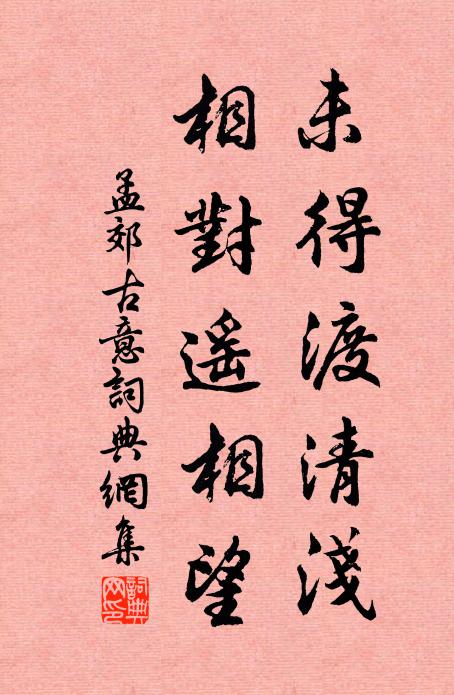 未得渡清淺
相對遥相望
孟郊古意詞典網集
詞典网印